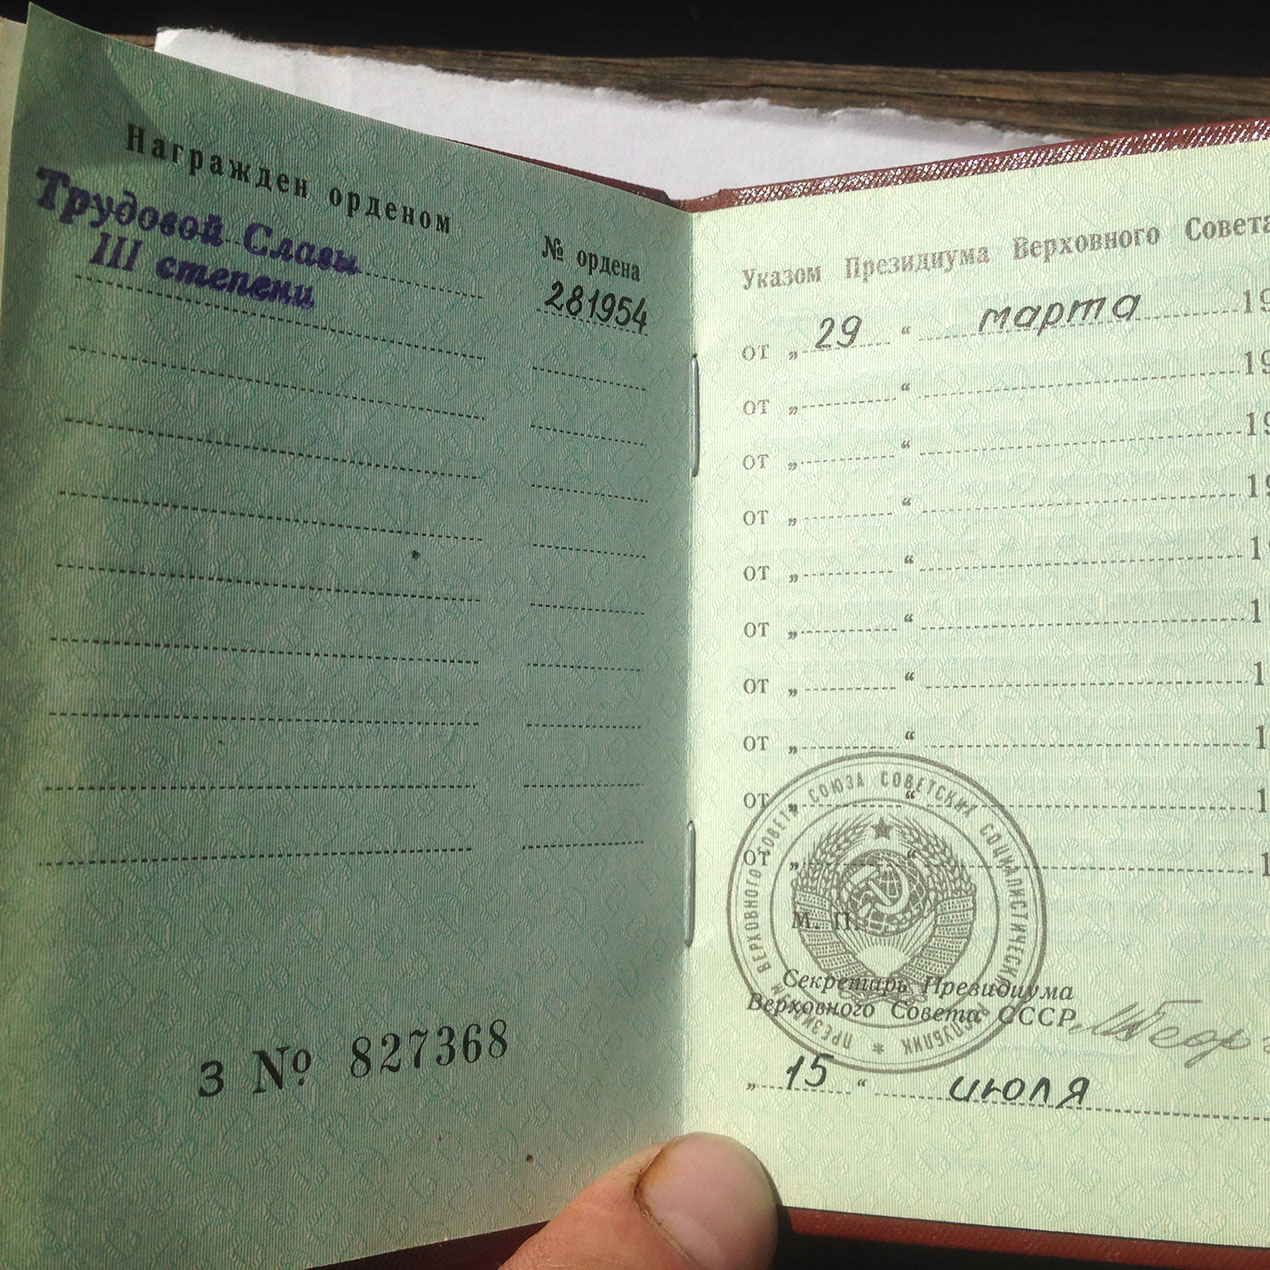 Награжден орденом
Трудовой Славы
III степени
№ ордена
281954
З № 827368
Указом Президиума Верховного Совета
от „ 29 “ марта 19
от „ “ 19
от „ “ 19
от „ “ 19
от „ “ 1
от „ “ 1
от „ “ 1
от „ “ 1
от „ “ 1
от „ “ 1
ПРЕЗИДИУМ ВЕРХОВНОГО СОВЕТА СОЮЗА СОВЕТСКИХ СОЦИАЛИСТИЧЕСКИХ РЕСПУБЛИК
М. П.
Секретарь Президиума
Верховного Совета СССР
„ 15 “ июля